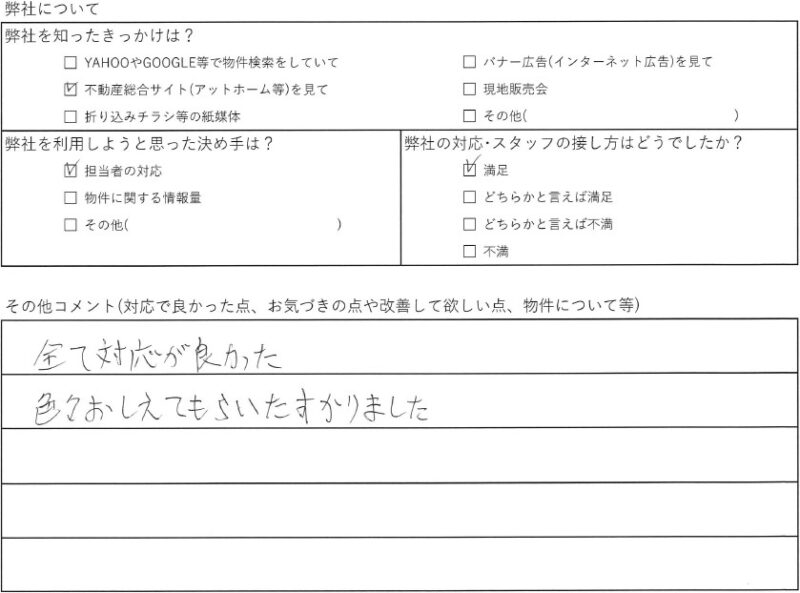 弊社について
弊社を知ったきっかけは？
□ YAHOOやGOOGLE等で物件検索をしていて
□ バナー広告(インターネット広告)を見て
☑ 不動産総合サイト(アットホーム等)を見て
□ 現地販売会
□ 折り込みチラシ等の紙媒体
□ その他( )
弊社を利用しようと思った決め手は？
☑ 担当者の対応
□ 物件に関する情報量
□ その他( )
弊社の対応･スタッフの接し方はどうでしたか？
☑ 満足
□ どちらかと言えば満足
□ どちらかと言えば不満
□ 不満
その他コメント(対応で良かった点、お気づきの点や改善して欲しい点、物件について等)
全て対応が良かった
色々おしえてもらいたすかりました